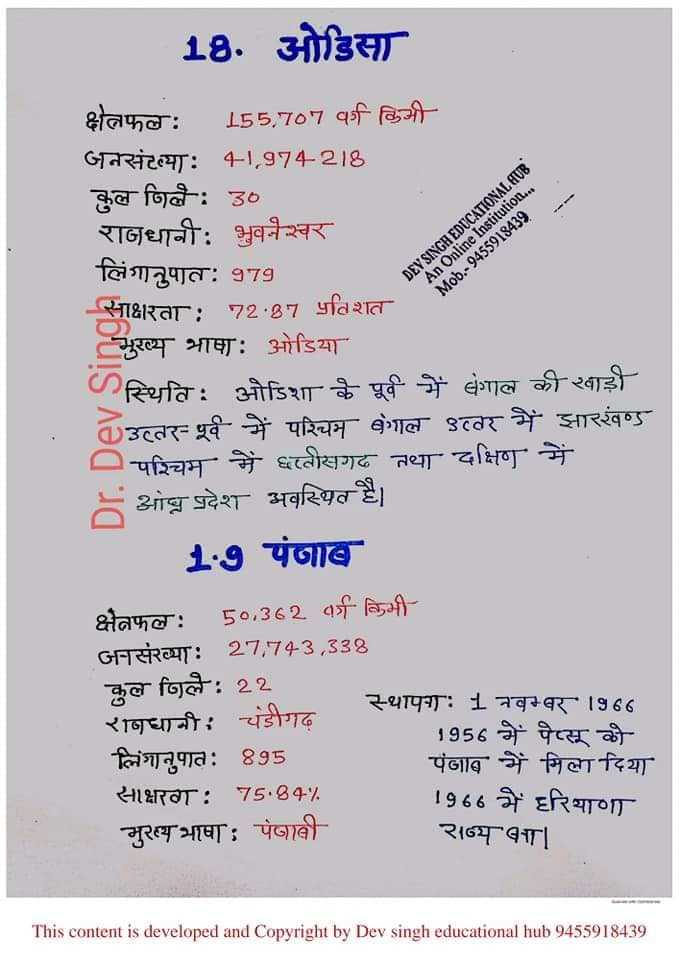 18. ओडिसा
क्षेत्रफल: 155,707 वर्ग किमी
जनसंख्या: 41,974218
कुल जिले: 30
राजधानी: भुवनेश्वर
लिंगानुपात: 979
साक्षरता: 72.87 प्रतिशत
मुख्य भाषा: ओडिया
स्थिति: ओडिशा के पूर्व में बंगाल की खाड़ी
उत्तर-पूर्व में पश्चिम बंगाल उत्तर में झारखंण्ड
पश्चिम में छत्तीसगढ तथा दक्षिण में
आंध्र प्रदेश अवस्थित है।
DEV SINGH EDUCATIONAL HUB
An Online Institution...
Mob.- 9455918439
Dr. Dev Singh
1.9 पंजाब
क्षेत्रफल: 50,362 वर्ग किमी
जनसंख्या: 27,743,338
कुल जिले: 22
राजधानी: चंडीगढ़
लिंगानुपात: 895
साक्षरता: 75.84%
मुख्य भाषा: पंजाबी
स्थापना: 1 नवम्बर 1966
1956 में पेप्सू को
पंजाब में मिला दिया
1966 में हरियाणा
राज्य बना|
This content is developed and Copyright by Dev singh educational hub 9455918439